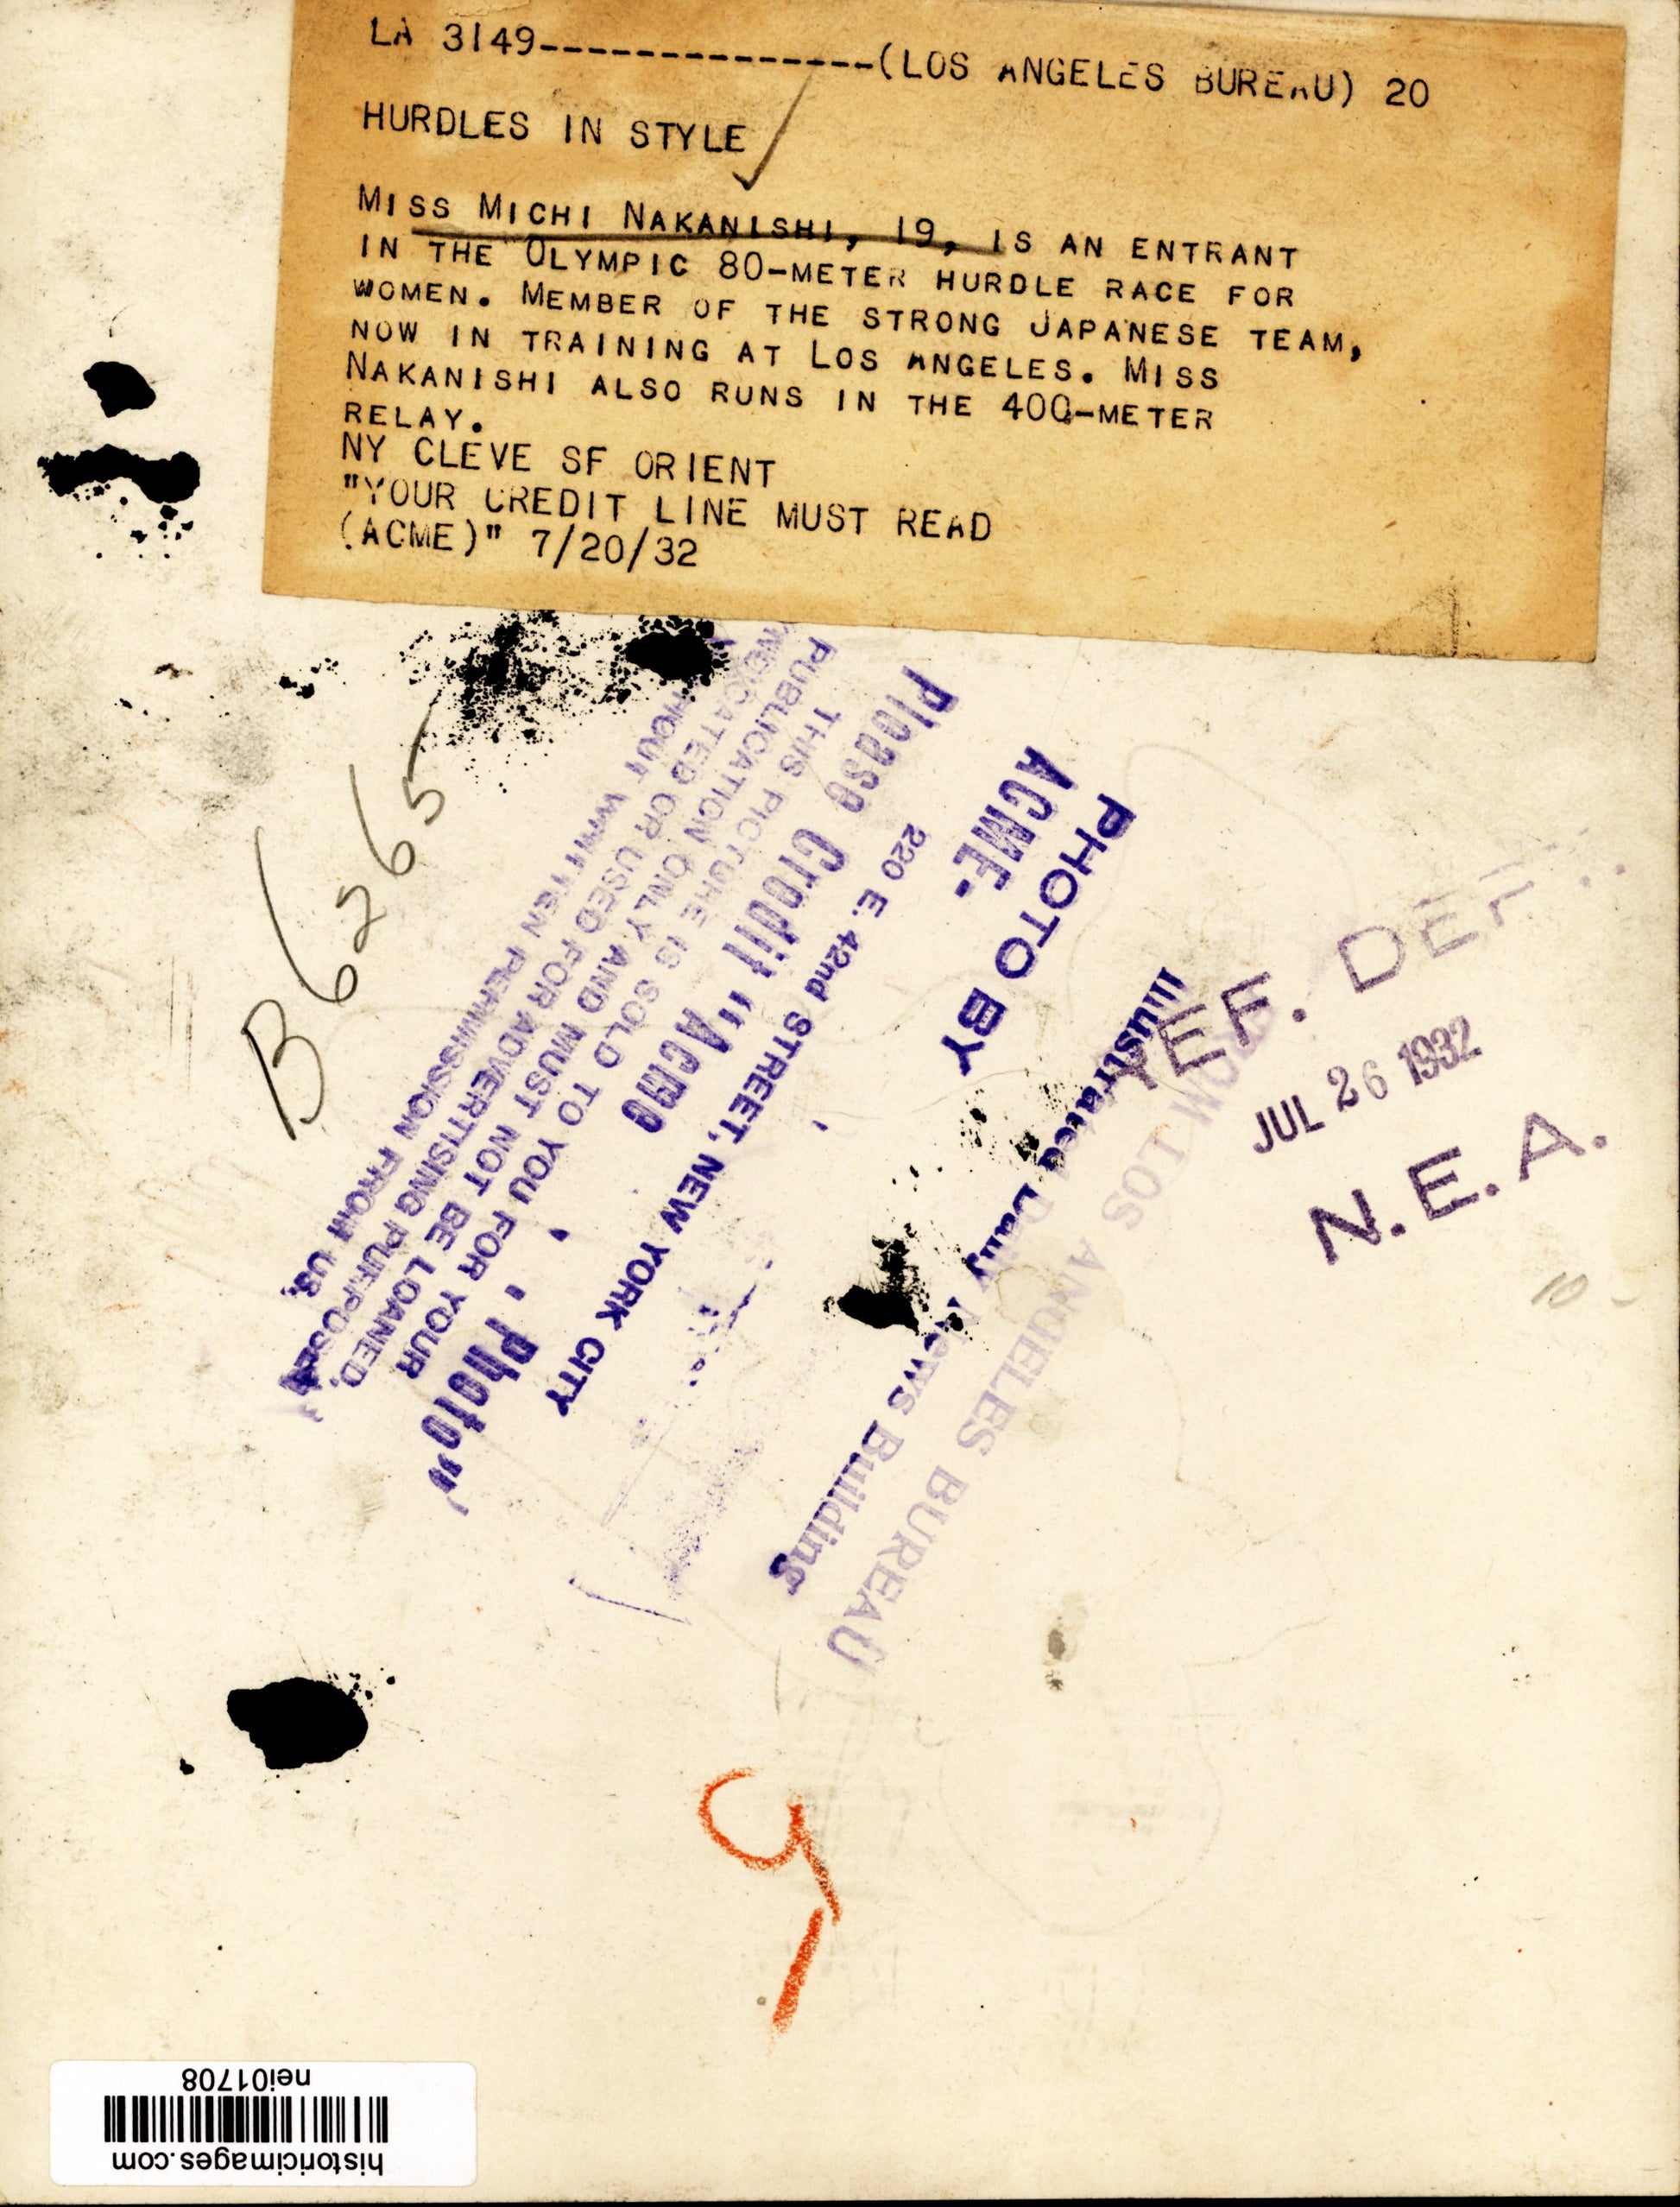 LA 3149---------------(LOS ANGELES BUREAU) 20
HURDLES IN STYLE
MISS MICHI NAKANISHI, 19, IS AN ENTRANT
IN THE OLYMPIC 80-METER HURDLE RACE FOR
WOMEN. MEMBER OF THE STRONG JAPANESE TEAM,
NOW IN TRAINING AT LOS ANGELES. MISS
NAKANISHI ALSO RUNS IN THE 400-METER
RELAY.
NY CLEVE SF ORIENT
"YOUR CREDIT LINE MUST READ
(ACME)" 7/20/32
B6265
PHOTO BY
ACME.
220 E. 42nd STREET, NEW YORK CITY
Please Credit "Acme Photo"
THIS PICTURE IS SOLD TO YOU FOR YOUR
PUBLICATION ONLY AND MUST NOT BE LOANED,
OR USED FOR ADVERTISING PURPOSES
WRITTEN PERMISSION FROM US.
Illustrated Daily News Building
LOS ANGELES BUREAU
REF. DEPT.
JUL 26 1932
N. E. A.
10
9
historicimages.com
nei01708